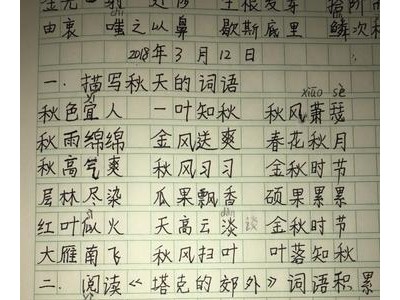 由衷 嗤之以鼻 歇斯底里 鳞次
2018年3月12日
一. 描写秋天的词语
xiāo sè
秋色宜人 一叶知秋 秋风萧瑟
秋雨绵绵 金风送爽 春花秋月
秋高气爽 秋风习习 金秋时节
层林尽染 瓜果飘香 硕果累累
红叶似火 天高云淡 金秋时节
大雁南飞 秋风扫叶 叶落知秋
二. 阅读《塔克的郊外》词语积累